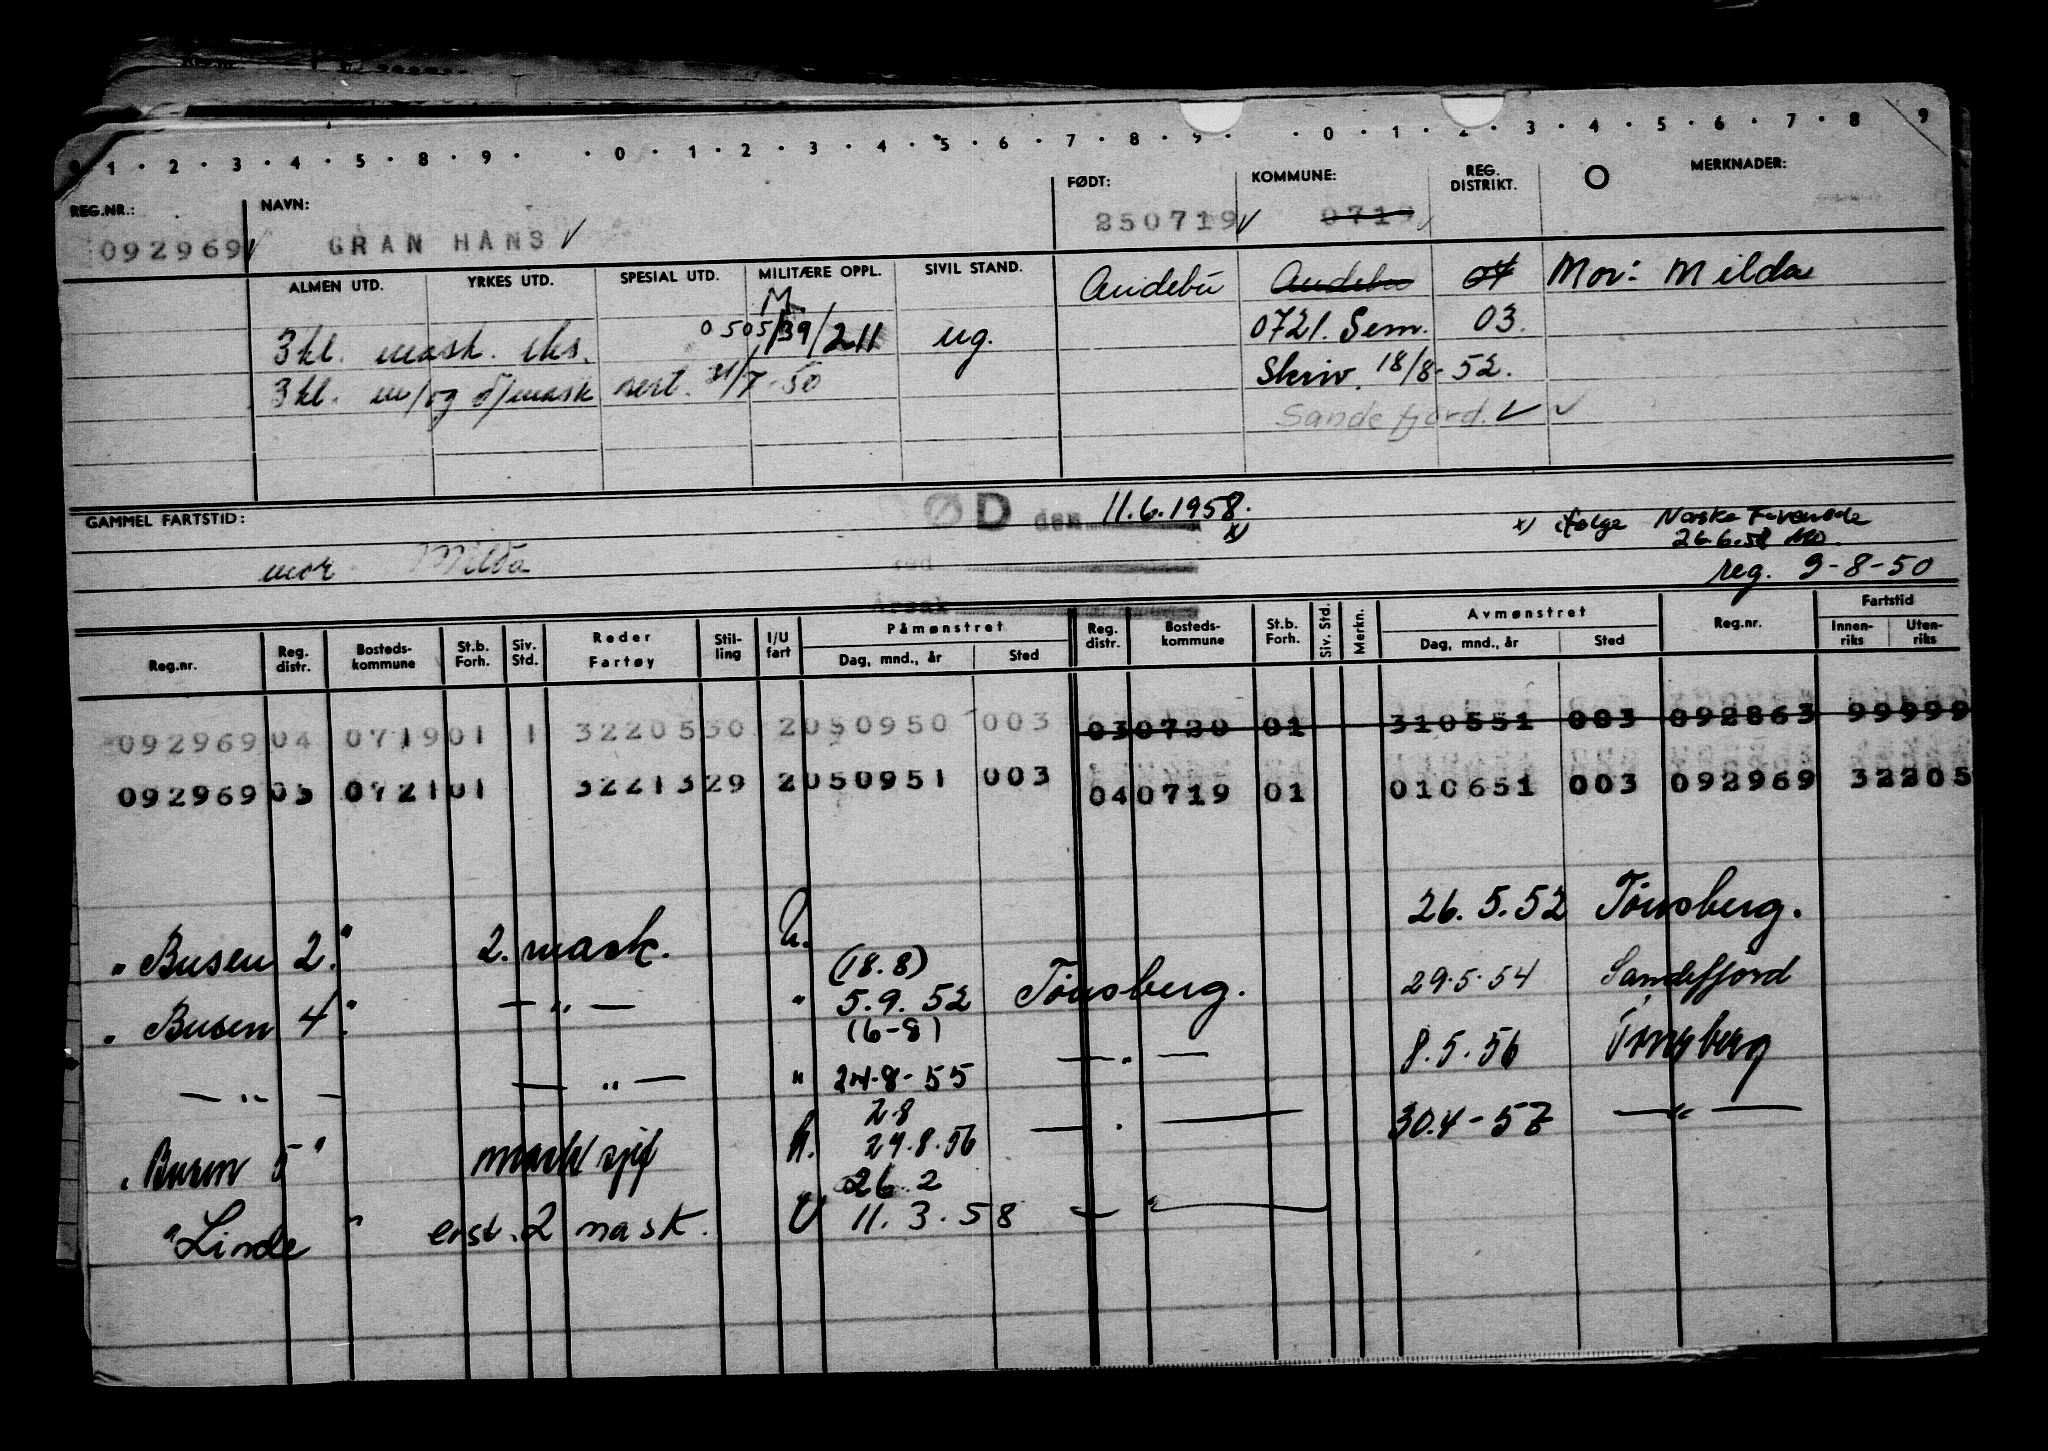 1 · 2 · 3 · 4 · 5 · 8 · 9 · · 0 · 1 · 2 · 3 · 4 · 5 · 6 · 7 · 8 · 9 · · 0 · 1 · 2 · 3 · 4 · 5 · 6 · 7 · 8 9
REG.NR.: NAVN: FØDT: KOMMUNE: REG. DISTRIKT. O MERKNADER:
092969 GRAN HANS 250719 0719
ALMEN UTD. YRKES UTD. SPESIAL UTD. MILITÆRE OPPL. SIVIL STAND. Andebu Andebu 04 Mor: Milda
M
3 kl. mask. eks. 0505/39/211 ug. 0721. Sem. 03.
3 kl. m/og d/mask sert. 31/7-50 Skriv. 18/8-52.
Sandefjord.
GAMMEL FARTSTID: ØD den 11.6.1958. x)
x) ifølge Norske
26.6.58
mor Milda
reg. 9-8-50
Årsak
Reg.nr. Reg. distr. Bosteds-kommune St.b. Forh. Siv. Std. Reder Fartøy Stil-ling I/U fart Påmønstret Dag, mnd., år Sted Reg. distr. Bosteds-kommune St.b. Forh. Siv. Std. Merkn. Avmønstret Dag, mnd., år Sted Reg.nr. Fartstid Innen-riks Uten-riks
092969 04 0719 01 1 32205 30 2 050950 003 03 0720 01 310551 003 092863 99999
092969 03 0721 01 32213 29 2 050951 003 04 0719 01 010651 003 092969 32205
26.5.52 Tønsberg.
"Busen 2." 2. mask. h.
(18.8)
"Busen 4." — " — " 5.9.52 Tønsberg. 29.5.54 Sandefjord
(6-8)
— " — — " — " 24-8-55 — " — 8.5.56 Tønsberg
2.8
"Busen 5" mask sjef h. 29.8.56 — " — 30.4-57 — " —
26.2
"Linde" erst. 2 mask. U 11.3.58 — " —